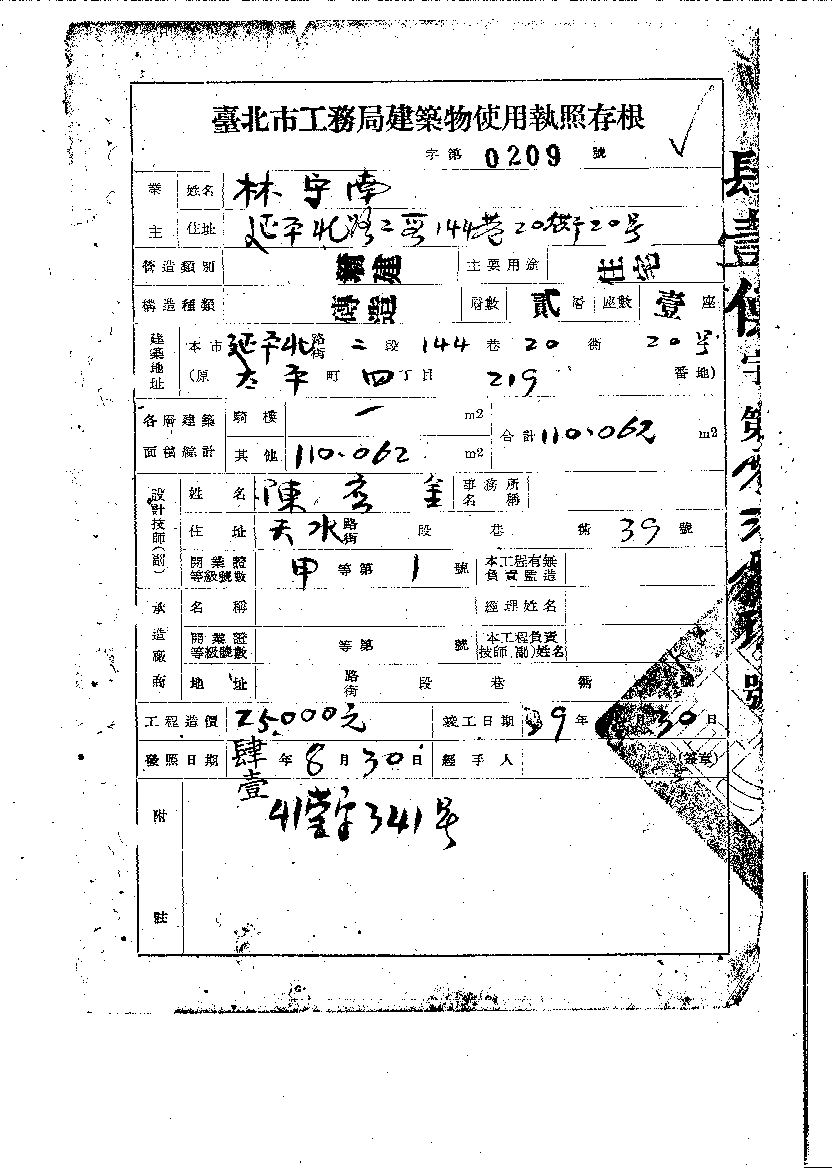 臺北市工務局建築物使用執照存根
字第 0209 號
業主 姓名 林守南
住址 延平北路二段144巷20衖20号
營造類別 新建 主要用途 住宅
構造種類 磚造 層數 貳 層 座數 壹 座
建築地址 本市 延平北 路街 二 段 144 巷 20 衖 20 号
(原 太平 町 四 丁目 219 番地)
各層建築面積總計 騎樓 一 m2 合計 110.062 m2
其他 110.062 m2
設計技師(副) 姓名 陳 金 事務所名稱
住址 天水 路街 段 巷 衖 39 號
開業證等級號數 甲 等第 1 號 本工程有無負責監造
承造廠商 名稱 經理姓名
開業證等級號數 等第 號 本工程負責技師(副)姓名
地址 路街 段 巷 衖 號
工程造價 25,000元 竣工日期 39年 月30日
發照日期 肆壹 年 8 月 30 日 經手人 (簽章)
附註 41營字341号
肆壹使字第 號